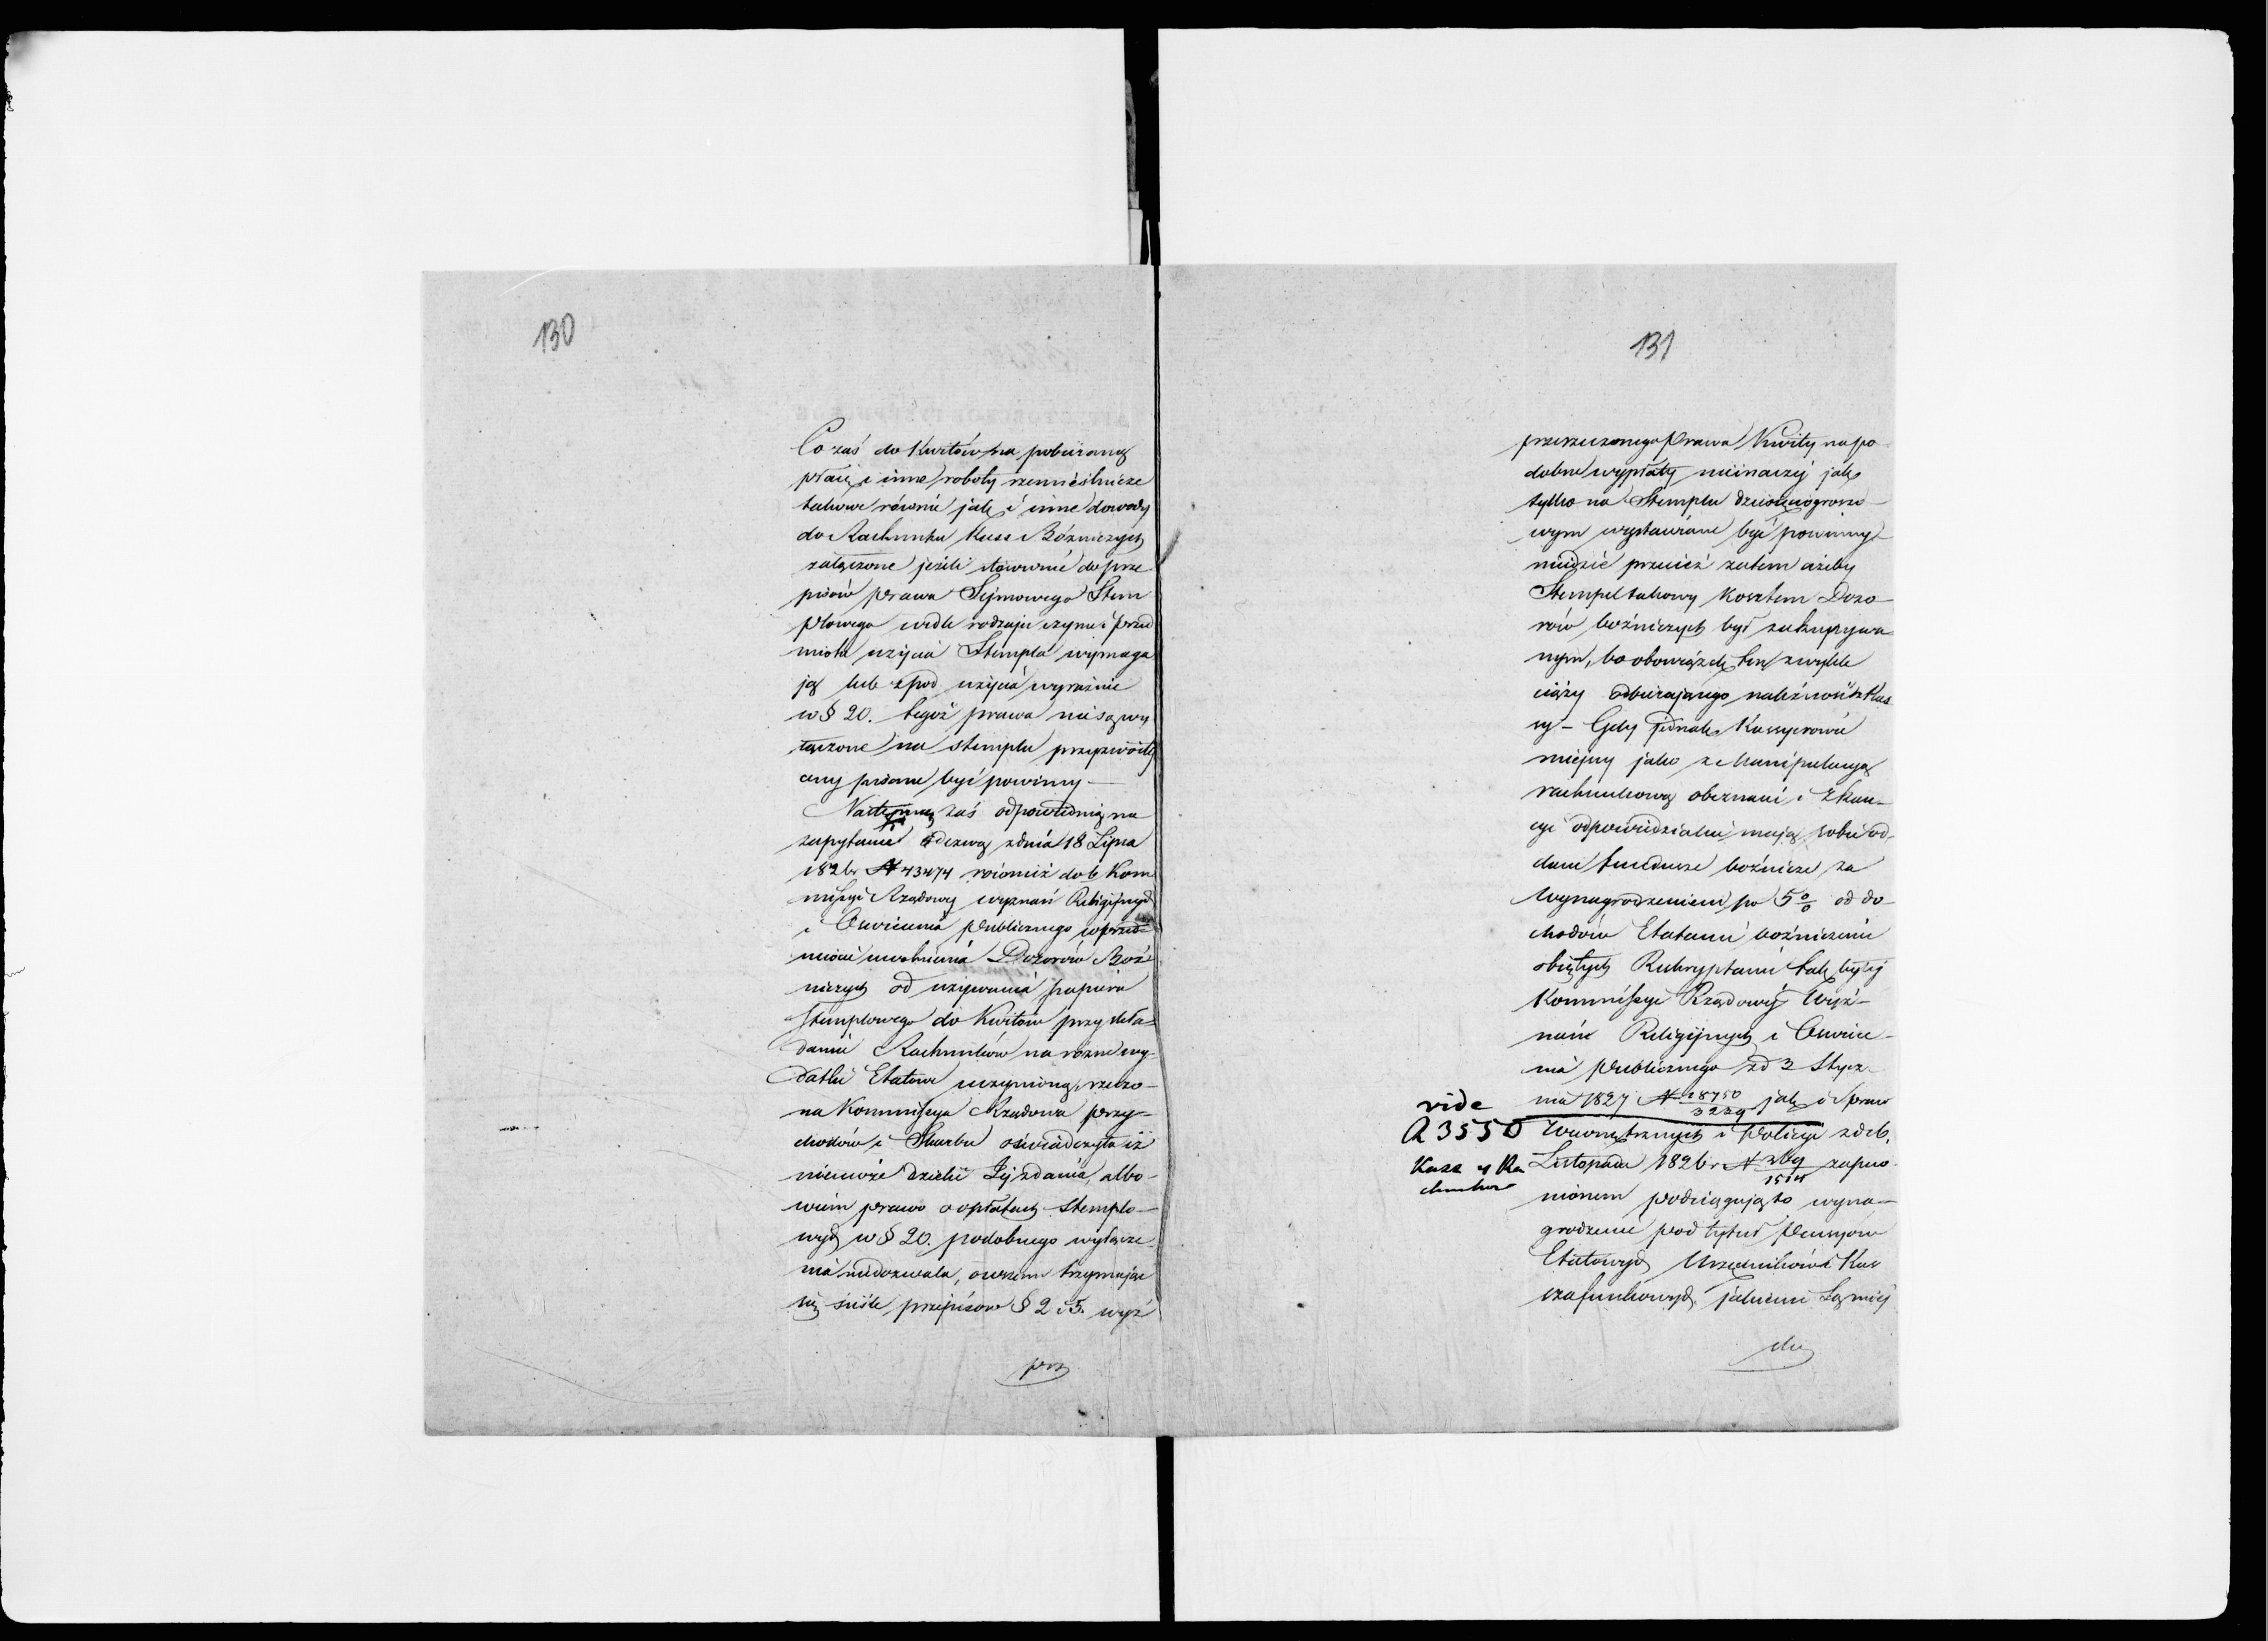 130
Co zaś do Kwitów na pobieraną
płacę i inne roboty rzemieślnicze
takowe równie jak i inne dowody
do Rachunku Kass Bóżniczych
załączone jeżeli stosownie do prze
pisów prawa Sejmowego Stem
plowego wedle rodzaju czynu i przed
miotu użycia Stempla wymaga
ją lub z pod użycia wyraźnie
w § 20. tegoż prawa nie są wy
łączone na stemplu przyzwoitej
ceny pisane być powinny —
zaś odpowiednią na
zapytanie Odezwą z dnia 18 Lipca
1826 r N 43474 również do b Kom
missyi Rządowej wyznań Religijnych
i Oświecenia publicznego w przed
miocie uwolnienia Dozorów Boż
niczych od używania papieru
stemplowego do Kwitów przy skła-
daniu Rachunków na różne wy-
datki Etatowe uczynioną, rzeczo-
na Kommissya Rządowa przy-
chodów i Skarbu oświadczyła iż
niemoże dzielić Jej zdania, albo-
wiem prawo o opłatach stemplo-
wych w § 20. podobnego wyłącze
nia niedozwala, owszem trzymając
się ściśle przepisów § 2 i 5. wyż
prz
131
przerzeczonego prawa Kwity na po
dobne wypłaty nieinaczej jak
tylko na Stemplu dziesięciogroszo-
wym wystawiane być powinny —
nieidzie przecież zatem ażeby
Stempel takowy kosztem Dozo-
rów bożniczych był zakupywa
nym, bo obowiązek ten zwykle
ciąży odbierającego należność z Kas
sy — Gdy jednak Kassyerowie
miejscy jako z Manipulacyą
rachunkową obeznani i z kau-
cyi odpowiedzialni mają sobie od-
dane fundusze bożnicze za
wynagrodzeniem po 5 % od do-
chodów Etatami bożniczemi
objętych Reskryptami tak byłej
Kommissyi Rządowej Wyz-
nań Religijnych i Oświece-
nia publicznego z d 3 Stycz-
nia 1827 N 28750/3229 jak i Spraw
vide
A 3550
Kass y Ra
chunkow
Wewnętrznych i Policyi z d 6.
Listopada 1826 r N zapew-
nionem podciągają to wyna-
grodzenie pod tytuł pensyów
Etatowych Urzędników Kas
szafunkowych, jakiemi są miej